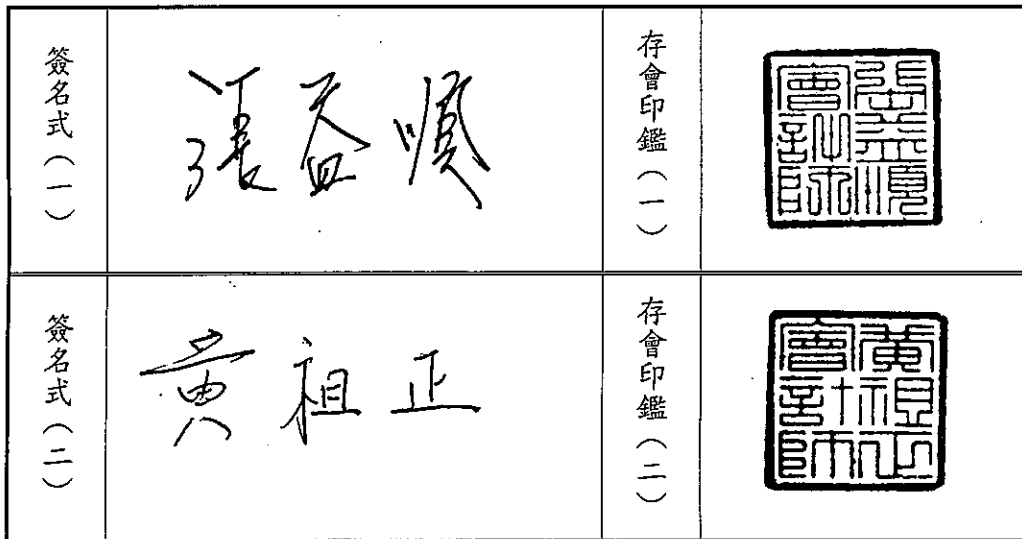 簽名式（一）
張益順
存會印鑑（一）
張益順會計師
簽名式（二）
黃祖正
存會印鑑（二）
黃祖正會計師